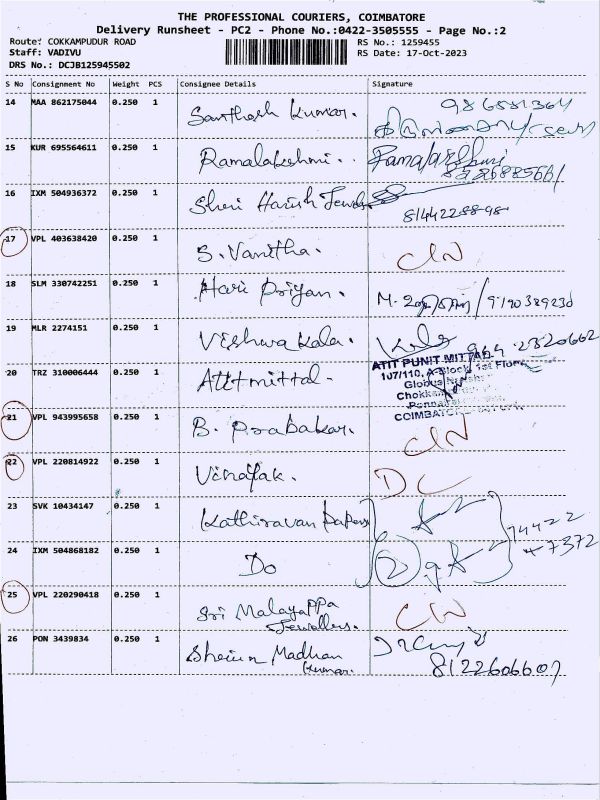 THE PROFESSIONAL COURIERS, COIMBATORE
Delivery Runsheet - PC2 - Phone No.:0422-3505555 - Page No.:2
Route: COKKAMPUDUR ROAD RS No.: 1259455
Staff: VADIVU RS Date: 17-Oct-2023
DRS No.: DCJB125945502
S No Consignment No Weight PCS Consignee Details Signature
14 MAA 862175044 0.250 1 Santhosh Kumar.
15 KUR 695564611 0.250 1 Ramalakshmi..
16 IXM 504936372 0.250 1 Shri Harish
8144228898
17 VPL 403638420 0.250 1 S. Vanitha.
18 SLM 330742251 0.250 1 Hari Priyan.
19 MLR 2274151 0.250 1 Vishwa Kala.
20 TRZ 310006444 0.250 1 Atitmittal. ATIT PUNIT MITTAL
107/110, A-Block, 1st Floor
COIMBATORE
21 VPL 943995658 0.250 1 B. Prabakar.
22 VPL 220814922 0.250 1 Vinayak. DC
23 SVK 10434147 0.250 1 Kathiravan Papers 74422
24 IXM 504868182 0.250 1 Do 2 47372
25 VPL 220290418 0.250 1 Sri Malayappa
Jewellers.
26 PON 3439834 0.250 1 Madhan
Kumar. 8122606607